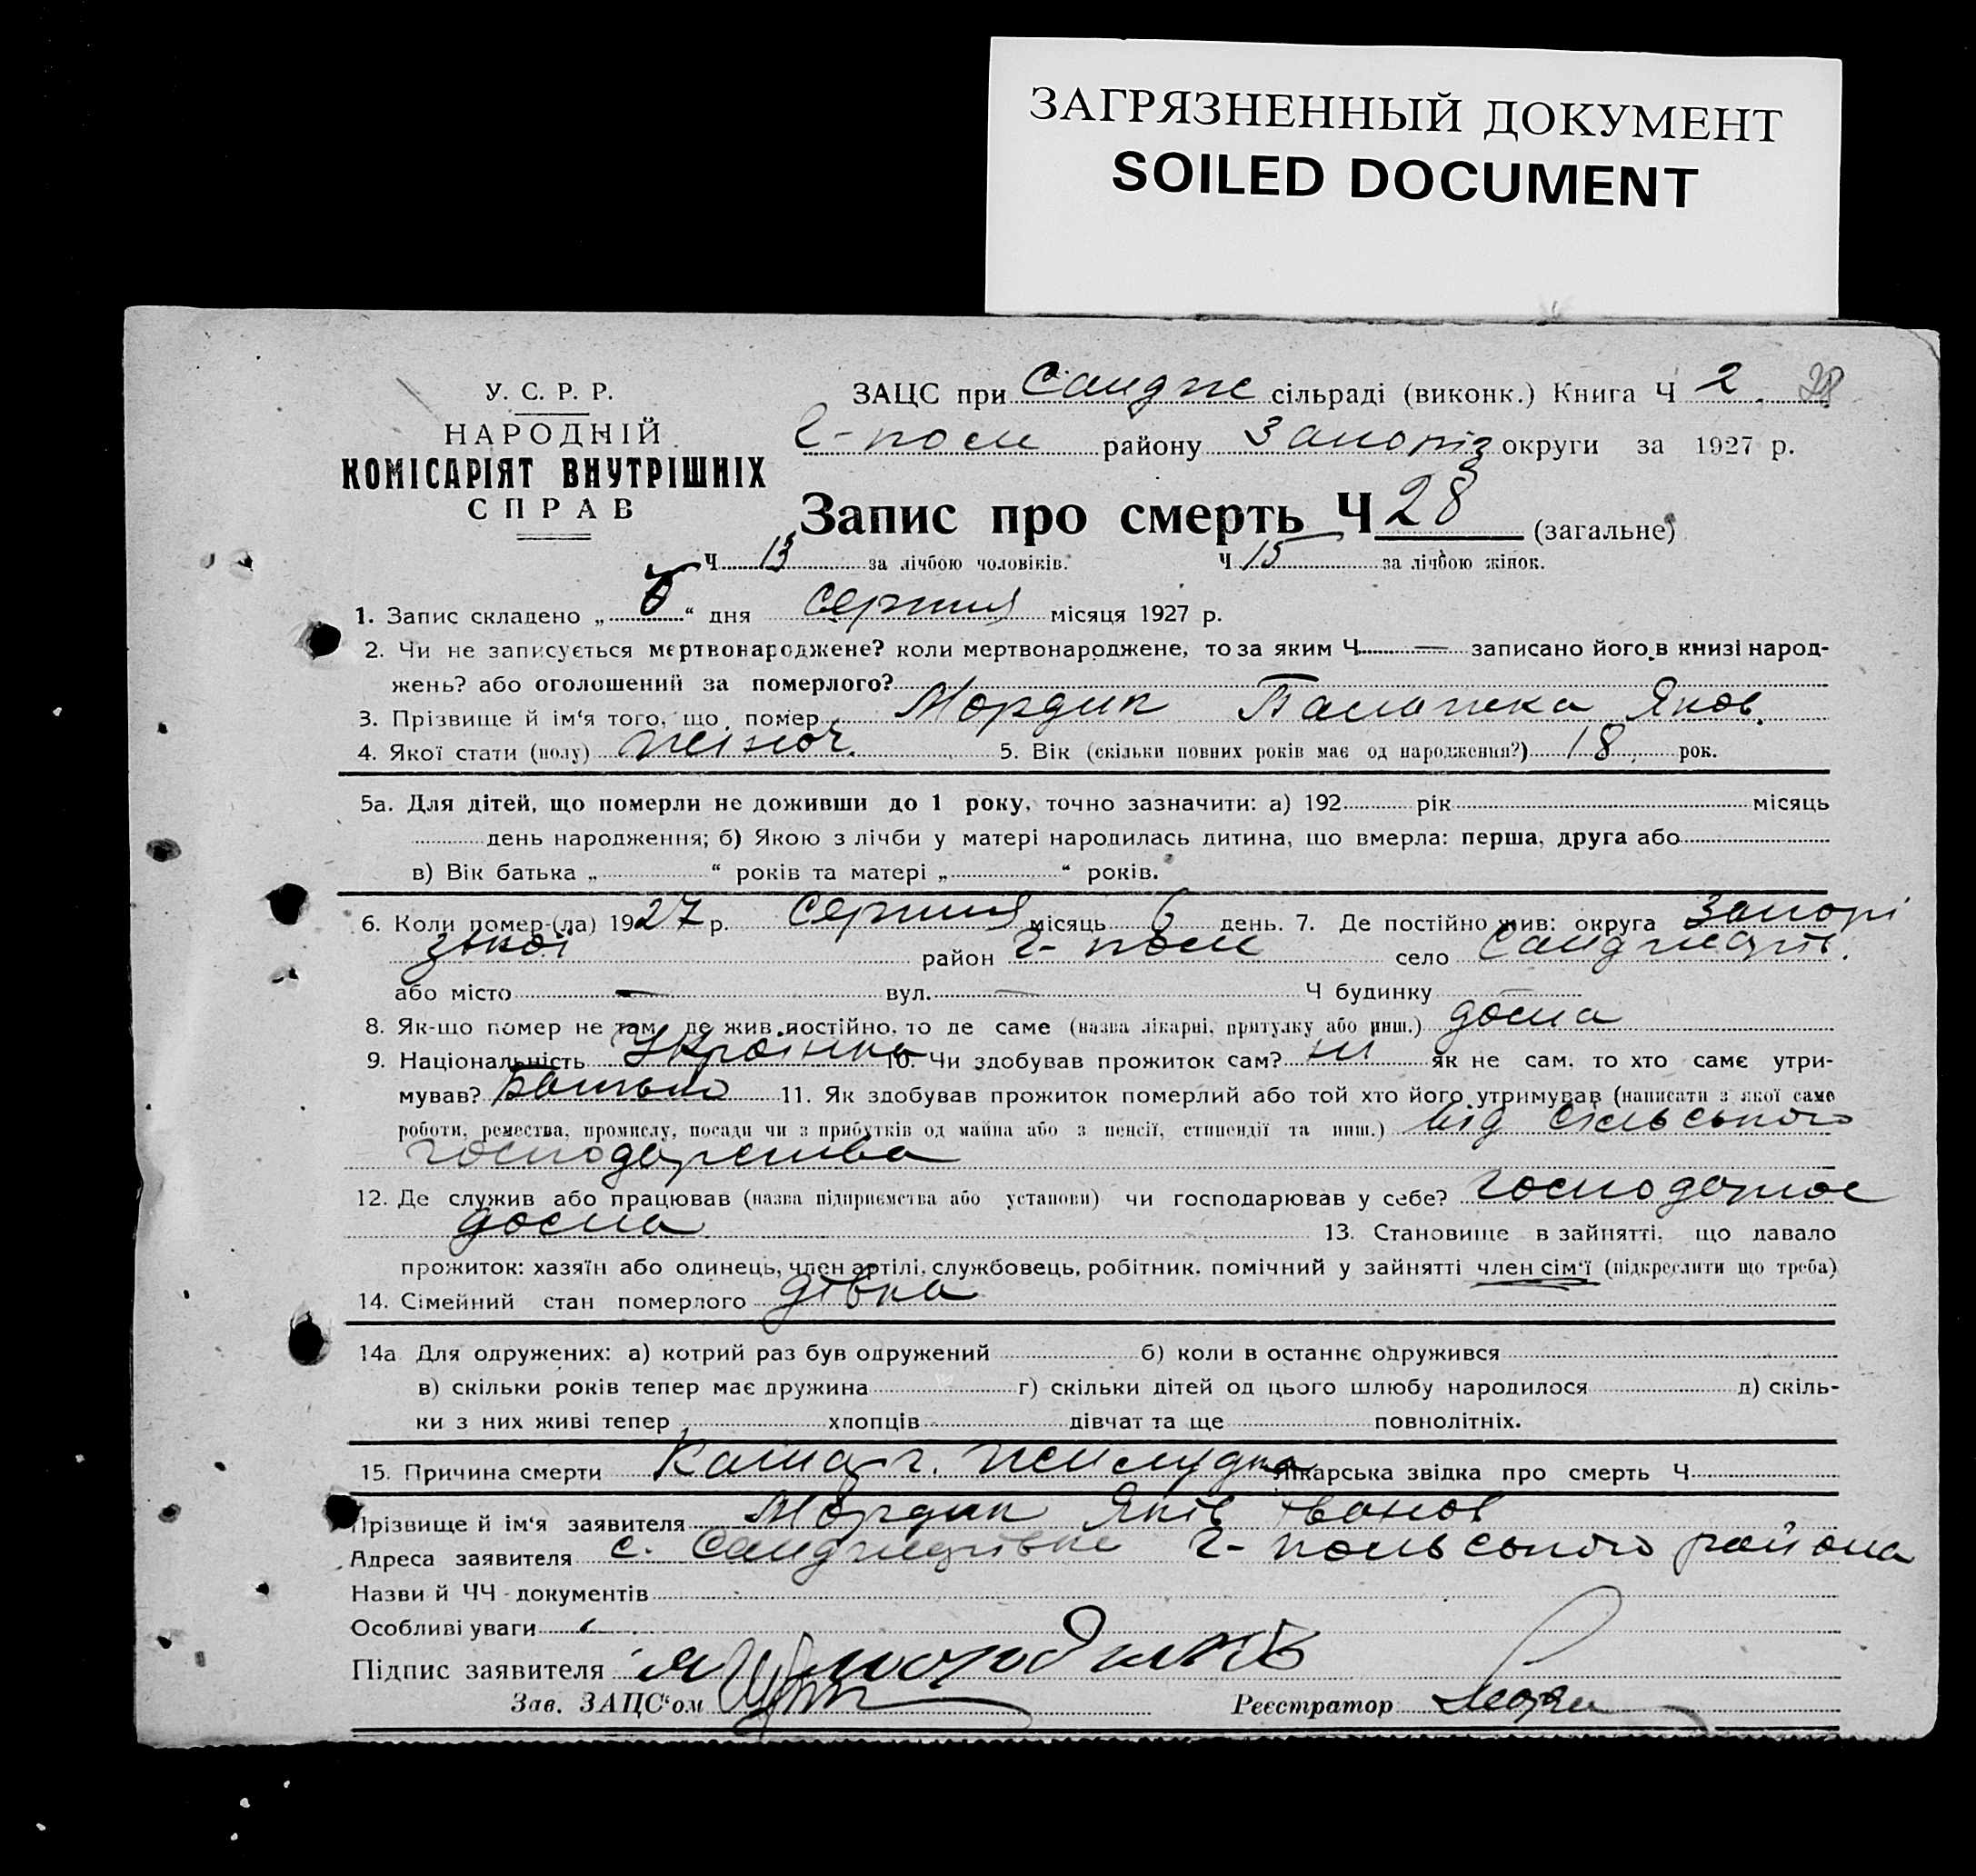 ЗАГРЯЗНЕННЫЙ ДОКУМЕНТ
SOILED DOCUMENT
У. С. Р. Р.
НАРОДНІЙ
КОМІСАРІЯТ ВНУТРІШНІХ
СПРАВ
ЗАЦС при Сандже сільраді (виконк.) Книга Ч 2 28
Г-поле району Запоріз округи за 1927 р.
Запис про смерть Ч 28 (загальне)
Ч 13 за лічбою чоловіків. Ч 15 за лічбою жінок.
1. Запис складено „ 6 “ дня серпня місяця 1927 р.
2. Чи не записується мертвонароджене? коли мертвонароджене, то за яким Ч — записано його в книзі народ-
жень? або оголошений за померлого?
3. Прізвище й ім‘я того, що помер Мордик Яков.
4. Якої стати (полу) жіноч. 5. Вік (скільки повних років має од народження?) 18 рок.
5а. Для дітей, що померли не доживши до 1 року, точно зазначити: а) 192 рік місяць
день народження; б) Якою з лічби у матері народилась дитина, що вмерла: перша, друга або
в) Вік батька „ “ років та матері „ “ років.
6. Коли помер-(ла) 1927 р. серпня місяць 6 день. 7. Де постійно жив: округа Запорі
зької район Г-поле село
або місто — вул. — Ч будинку —
8. Як-що помер не там, де жив постійно, то де саме (назва лікарні, притулку або инш.) дома
9. Національність Українка 10. Чи здобував прожиток сам? ні як не сам, то хто саме утри-
мував? Батько 11. Як здобував прожиток померлий або той хто його утримував (написати з якої саме
роботи, ремества, промислу, посади чи з прибутків од майна або з пенсії, стипендії та инш.) від сільського
господарства
12. Де служив або працював (назва підприємства або установи) чи господарював у себе? господарює
дома 13. Становище в зайнятті, що давало
прожиток: хазяїн або одинець, член артілі, службовець, робітник, помічний у зайнятті член сім‘ї (підкреслити що треба)
14. Сімейний стан померлого дівка
14а Для одружених: а) котрий раз був одружений б) коли в останнє одружився
в) скільки років тепер має дружина г) скільки дітей од цього шлюбу народилося д) скіль-
ки з них живі тепер хлопців дівчат та ще повнолітніх.
15. Причина смерти Лікарська звідка про смерть Ч
Прізвище й ім‘я заявителя Мордик Яків Іванов
Адреса заявителя с. Санджарівка Г-польського района
Назви й ЧЧ документів
Особливі уваги
Підпис заявителя
Зав. ЗАЦС‘ом Реєстратор